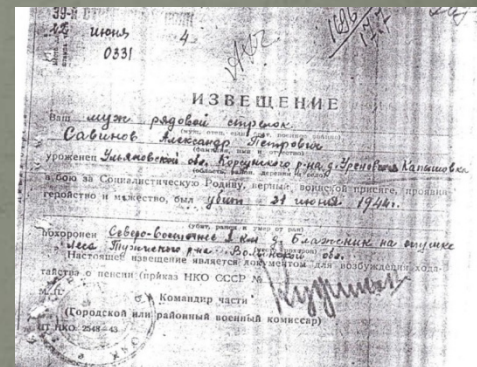 39-й
22 июня 4
0331
1686
ИЗВЕЩЕНИЕ
Ваш муж рядовой стрелок
Савинов Александр Петрович
уроженец Ульяновской обл. Корсунского р-на д.
в бою за Социалистическую Родину, верный воинской присяге, проявив
геройство и мужество, был убит 21 июня 1944г.
(убит, ранен и умер от ран)
похоронен Северо-восточнее 1 км д. Блаженик на опушке
леса р-на Волынской обл.
Настоящее извещение является документом для возбуждения хода-
тайства о пенсии (приказ НКО СССР №
Командир части
(Городской или районный военный комиссар)
НКО. 2548—43